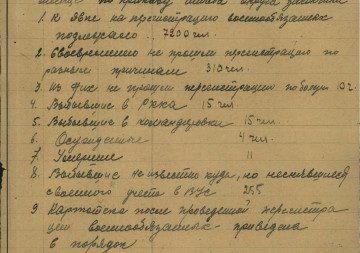 1. К явке на перегистрацию военнообязанных
подлежало .. 7200 чел.
2. Своевременно не прошли перегистрацию по
разным причинам 310 чел.
3. Из них не прошли перегистрацию по болезн. 10 ч.
4. Выбывшие в РККА 15 чел.
5. Выбывшие в командировки 15 чел.
6. Осужденные 4 чел.
7. Умершие 11
8. Выбывшие не известно куда, но неснявшиеся
с военного учета в ВУС 255
9. Картотека после проведенной перегистра
ции военнообязанных приведена
в порядок